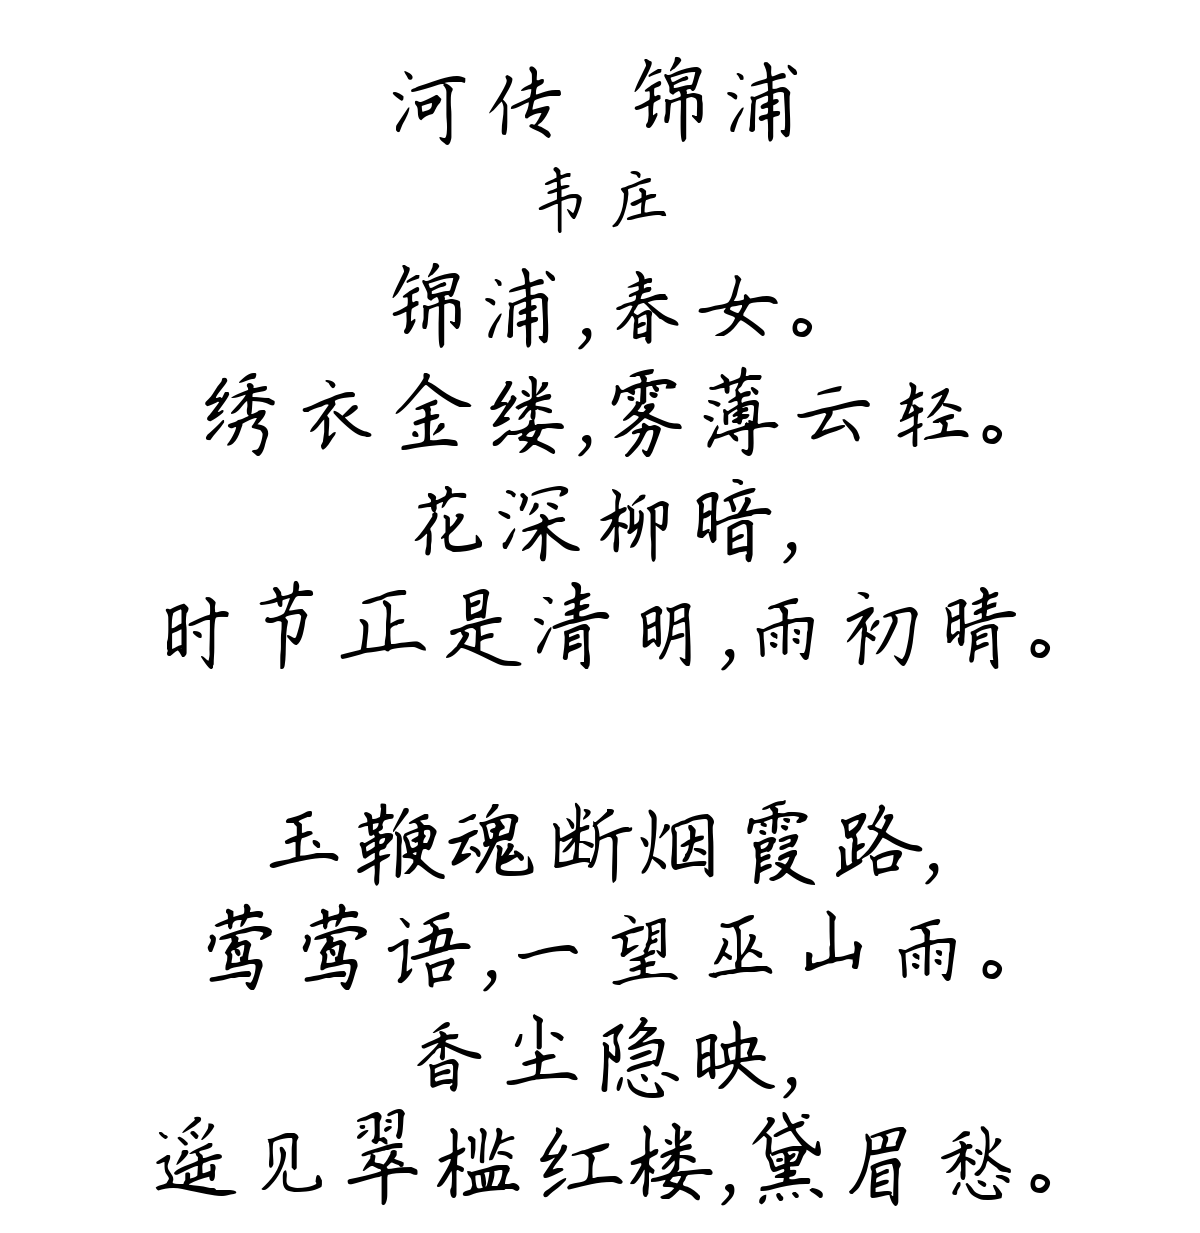 河传 锦浦
韦庄
锦浦,春女。
绣衣金缕,雾薄云轻。
花深柳暗,
时节正是清明,雨初晴。
玉鞭魂断烟霞路,
莺莺语,一望巫山雨。
香尘隐映,
遥见翠槛红楼,黛眉愁。